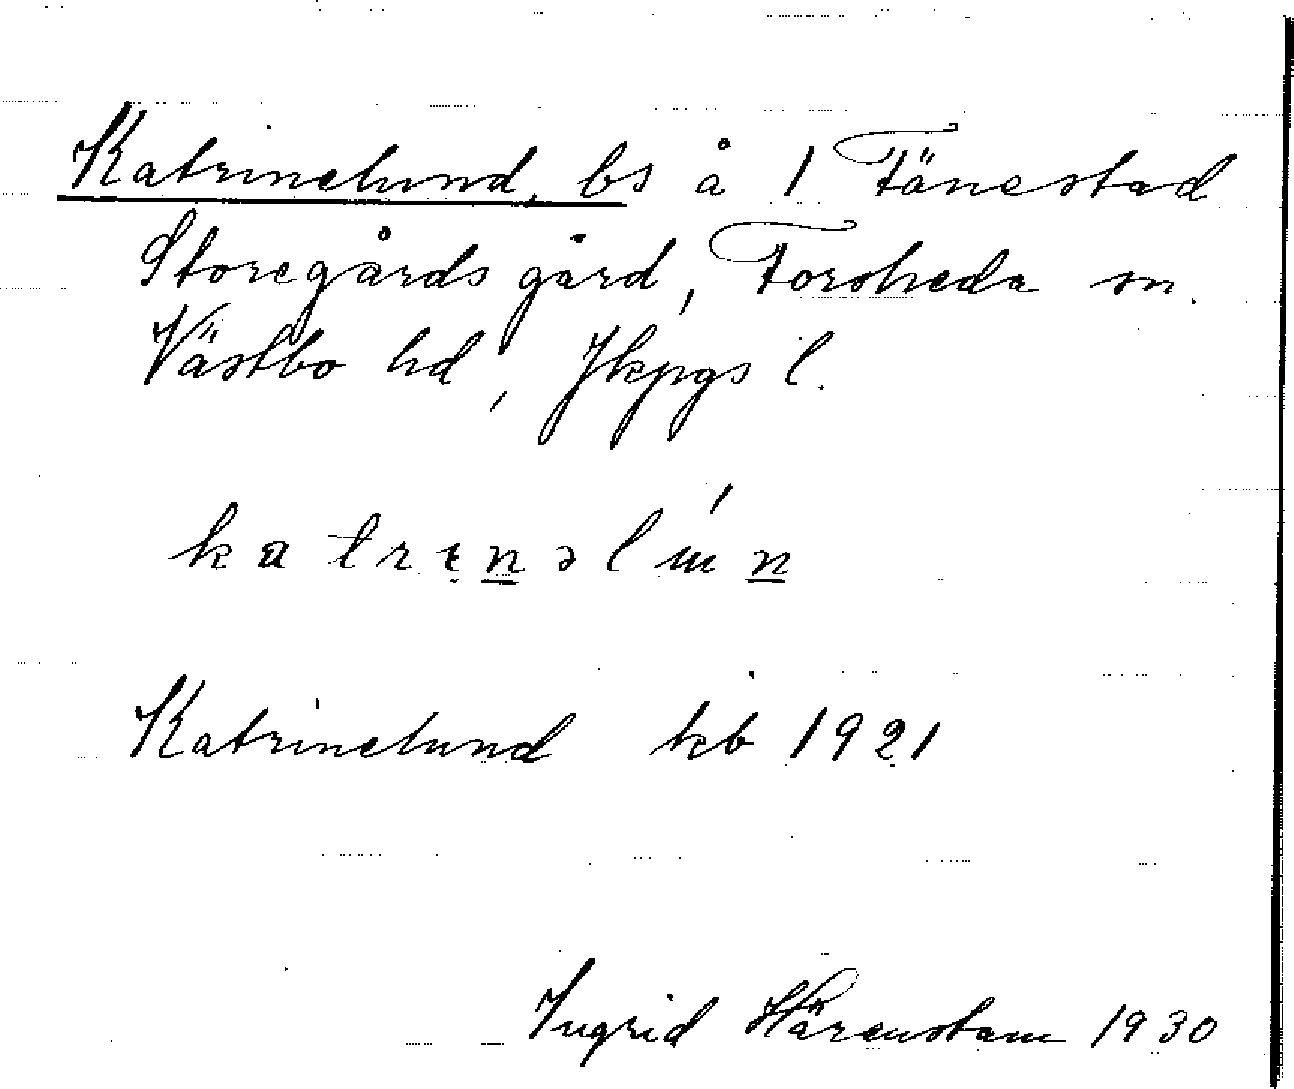 Katrinelund, bs å 1 Tånestad
Storegårds gård, Forsheda sn.
Västbo hd, Jkpgs l.
Katrinelund kb 1921
Ingrid Härenstam 1930